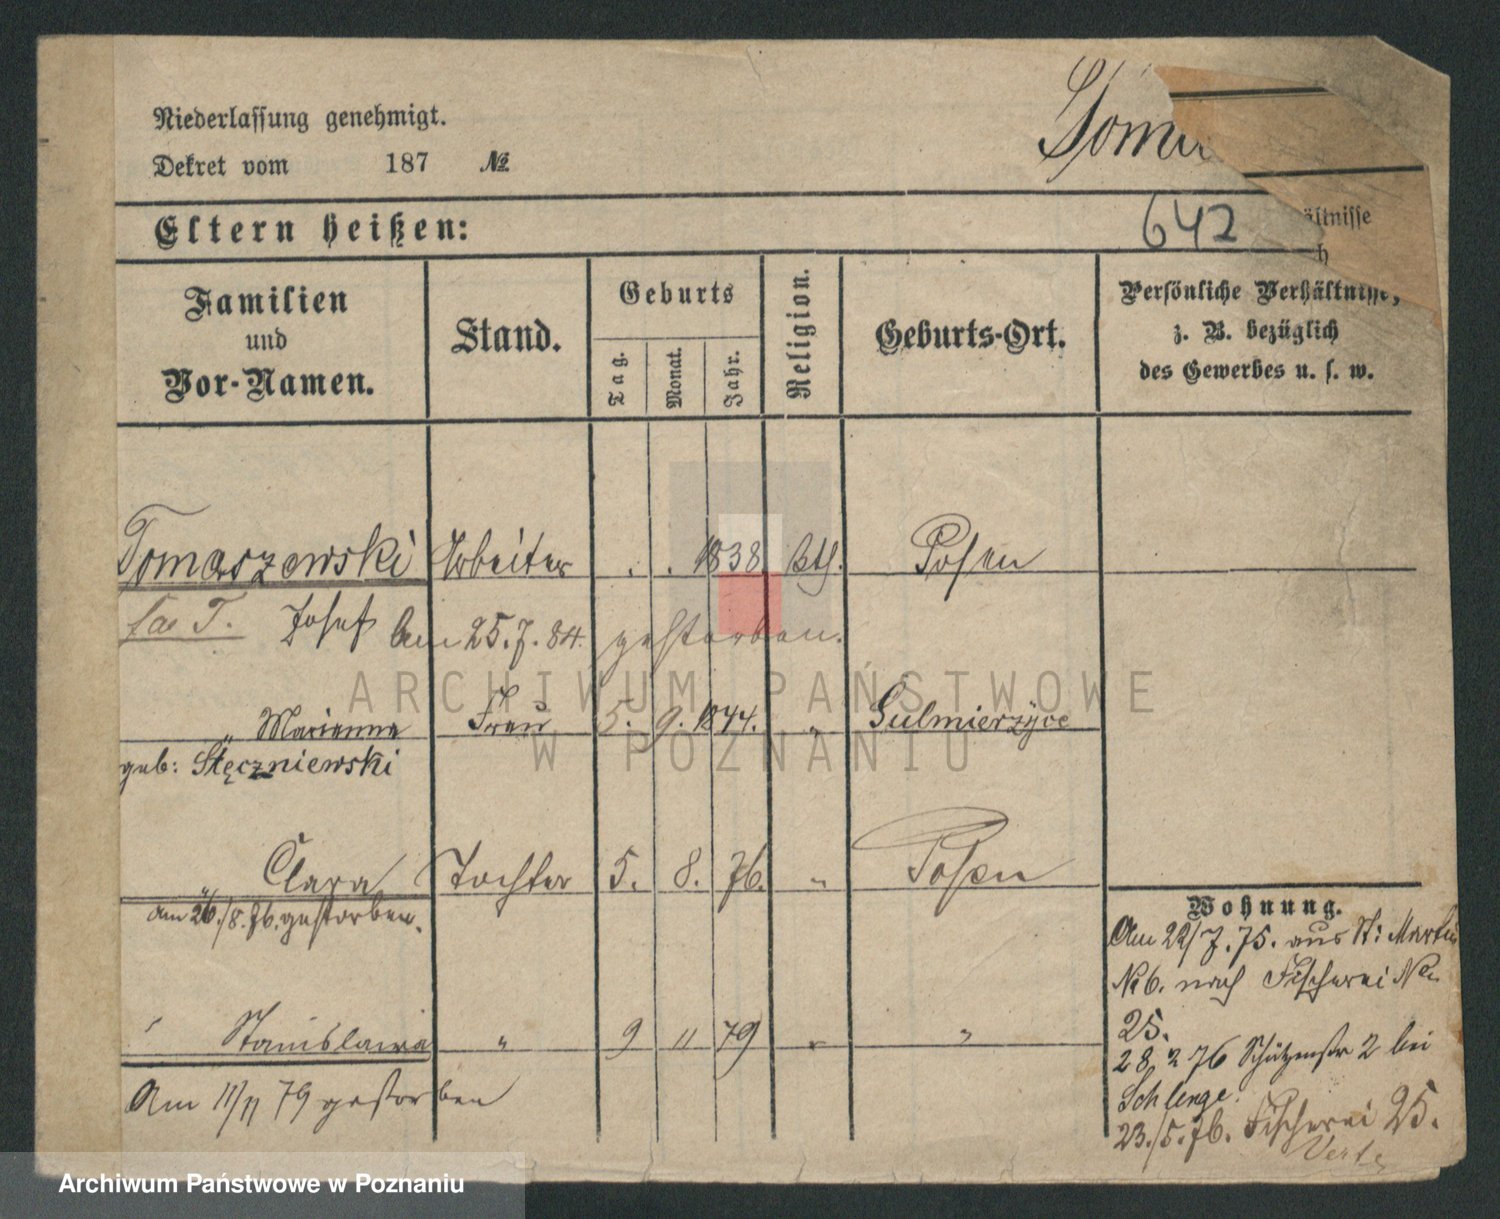 Niederlassung genehmigt.
Dekret vom 187 №
642
ältnisse
h
Eltern heißen:
Familien
und
Vor-Namen.
Stand.
Geburts
Tag.
Monat.
Jahr.
Religion.
Geburts-Ort.
Persönliche Verhältnisse,
z. B. bezüglich
des Gewerbes u. s. w.
Tomaszewski Arbeiter . . 1838 kth. Posen
T. Josef Am 25.7.84. gestorben.
ARCHIWUM PAŃSTWOWE
W POZNANIU
„ Marianna Frau 5. 9. 1844. „ Sulmierzyce
geb: Stęczniewski
„ Clara Tochter 5. 8. 76. „ Posen
am 26./8.76. gestorben.
Stanislawa „ 9 11 79 „ „
Am 11/11 79 gestorben
Wohnung.
Am 22/7.75. aus St: Martin
No 6. nach Fischerei No
25.
28 2 76 Schützenstr 2 bei
Schlenge.
23./5.76. Fischerei 25.
Verte
Archiwum Państwowe w Poznaniu